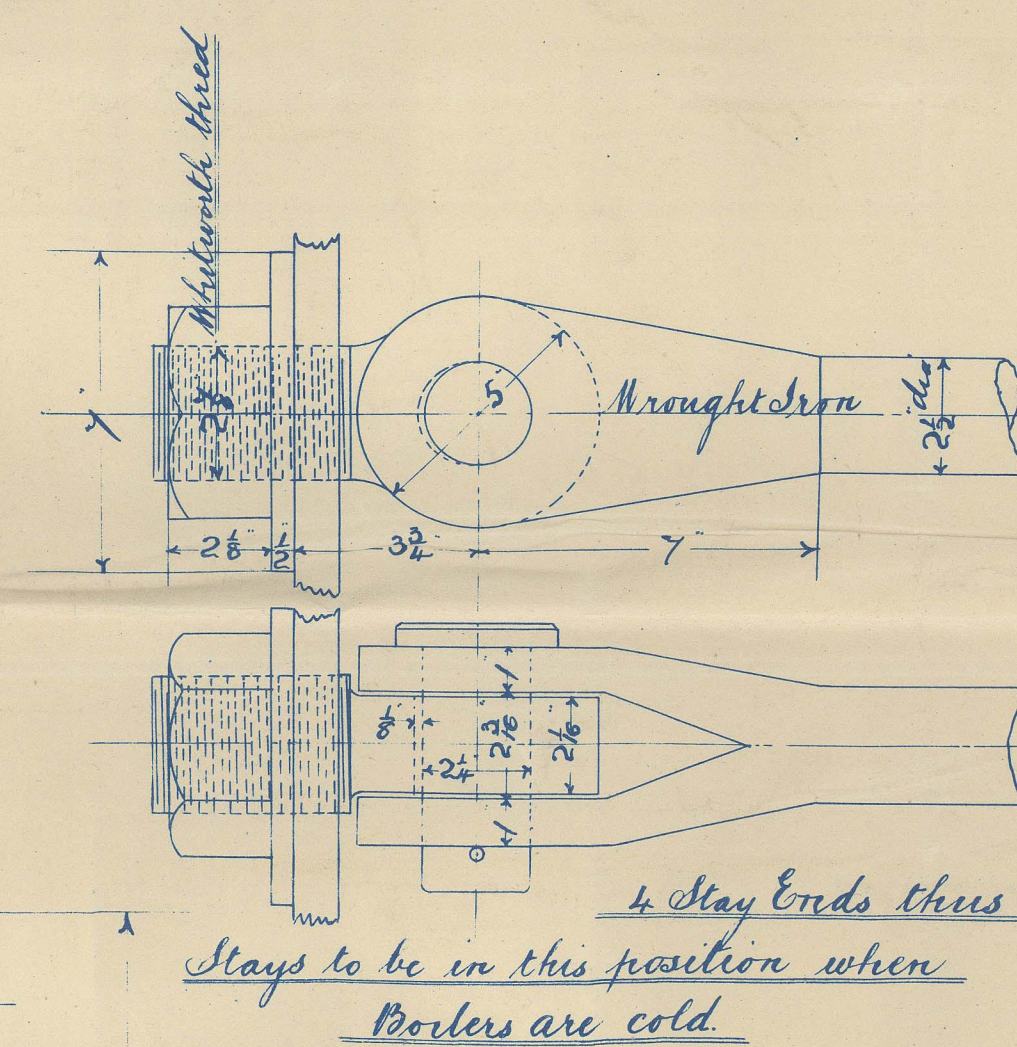 Whitworth thred
7"
2 7/8
5"
Wrought Iron
2 1/2" dia
2 1/8"
1/2"
3 3/4"
7"
1
1/8"
2 3/16"
2 1/16"
2 1/4"
1
4 Stay Ends thus
Stays to be in this position when
Boilers are cold.